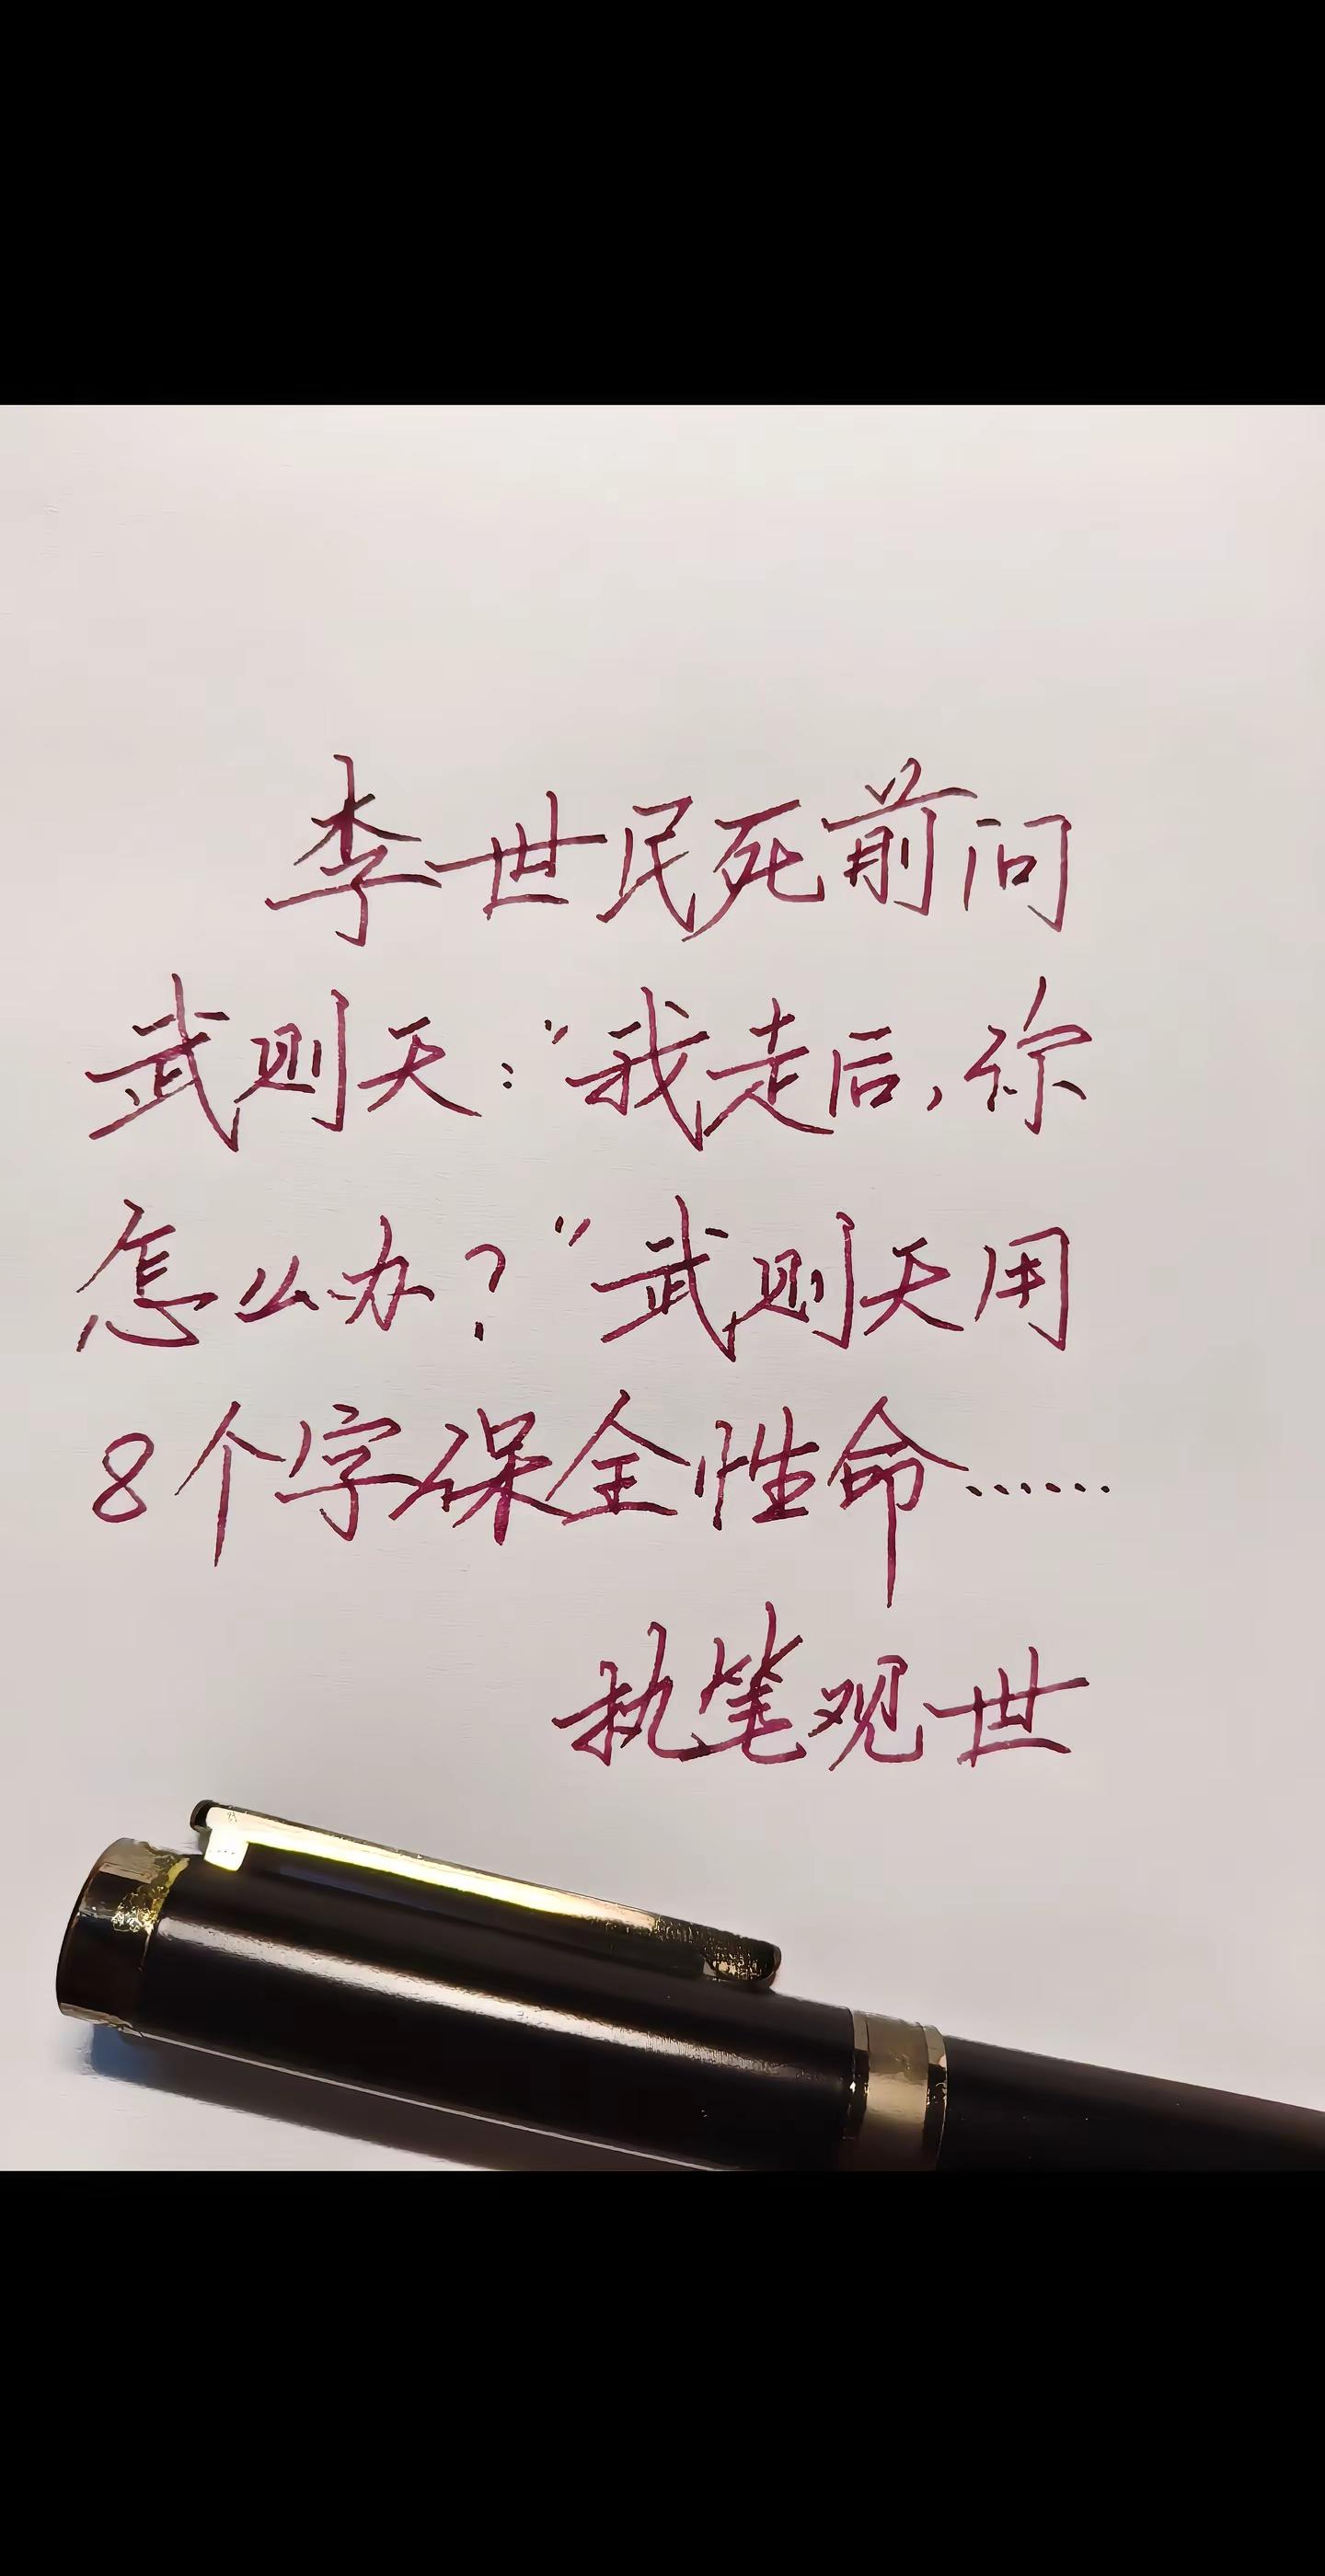 李世民死前问
武则天："我走后,你
怎么办？"武则天用
8个字保全性命……
执笔观世